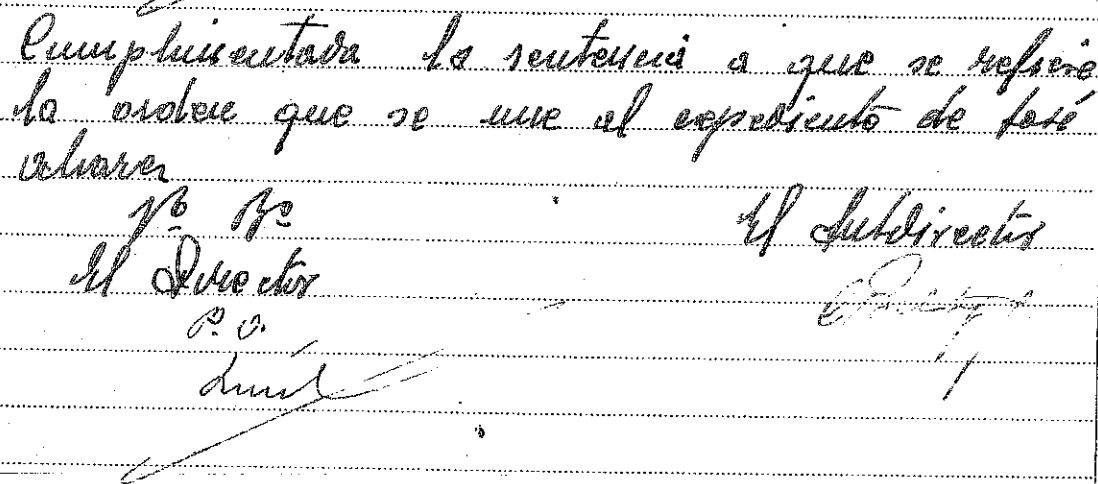 Cumplimentada la sentencia a que se refiere
la orden que se une al expediente de José
Alvarez
Vº Bº
El Subdirector
El Director
P. O.